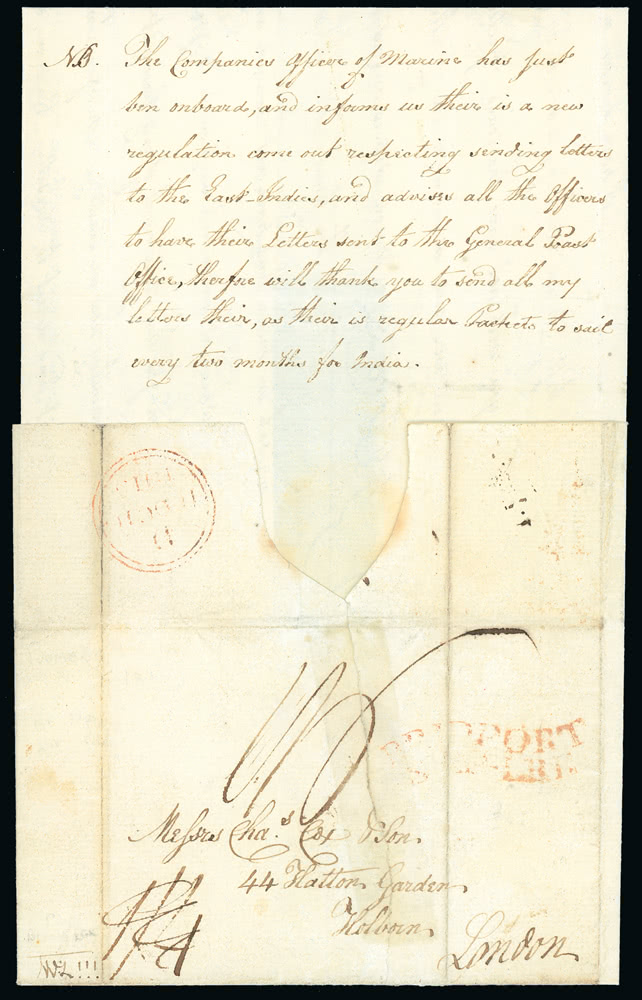 NB. The Companies Officer of Marine has just
ben onboard, and informs us their is a new
regulation come out respicting sending letters
to the East-Indies, and advises all the Officers
to have their Letters sent to the General Post
Office, therfre will thank you to send all my
letters their, as their is regular Packets to sail
every two months for India.
Messrs Chas. Cox & Son
44 Hatton Garden
Holborn
London